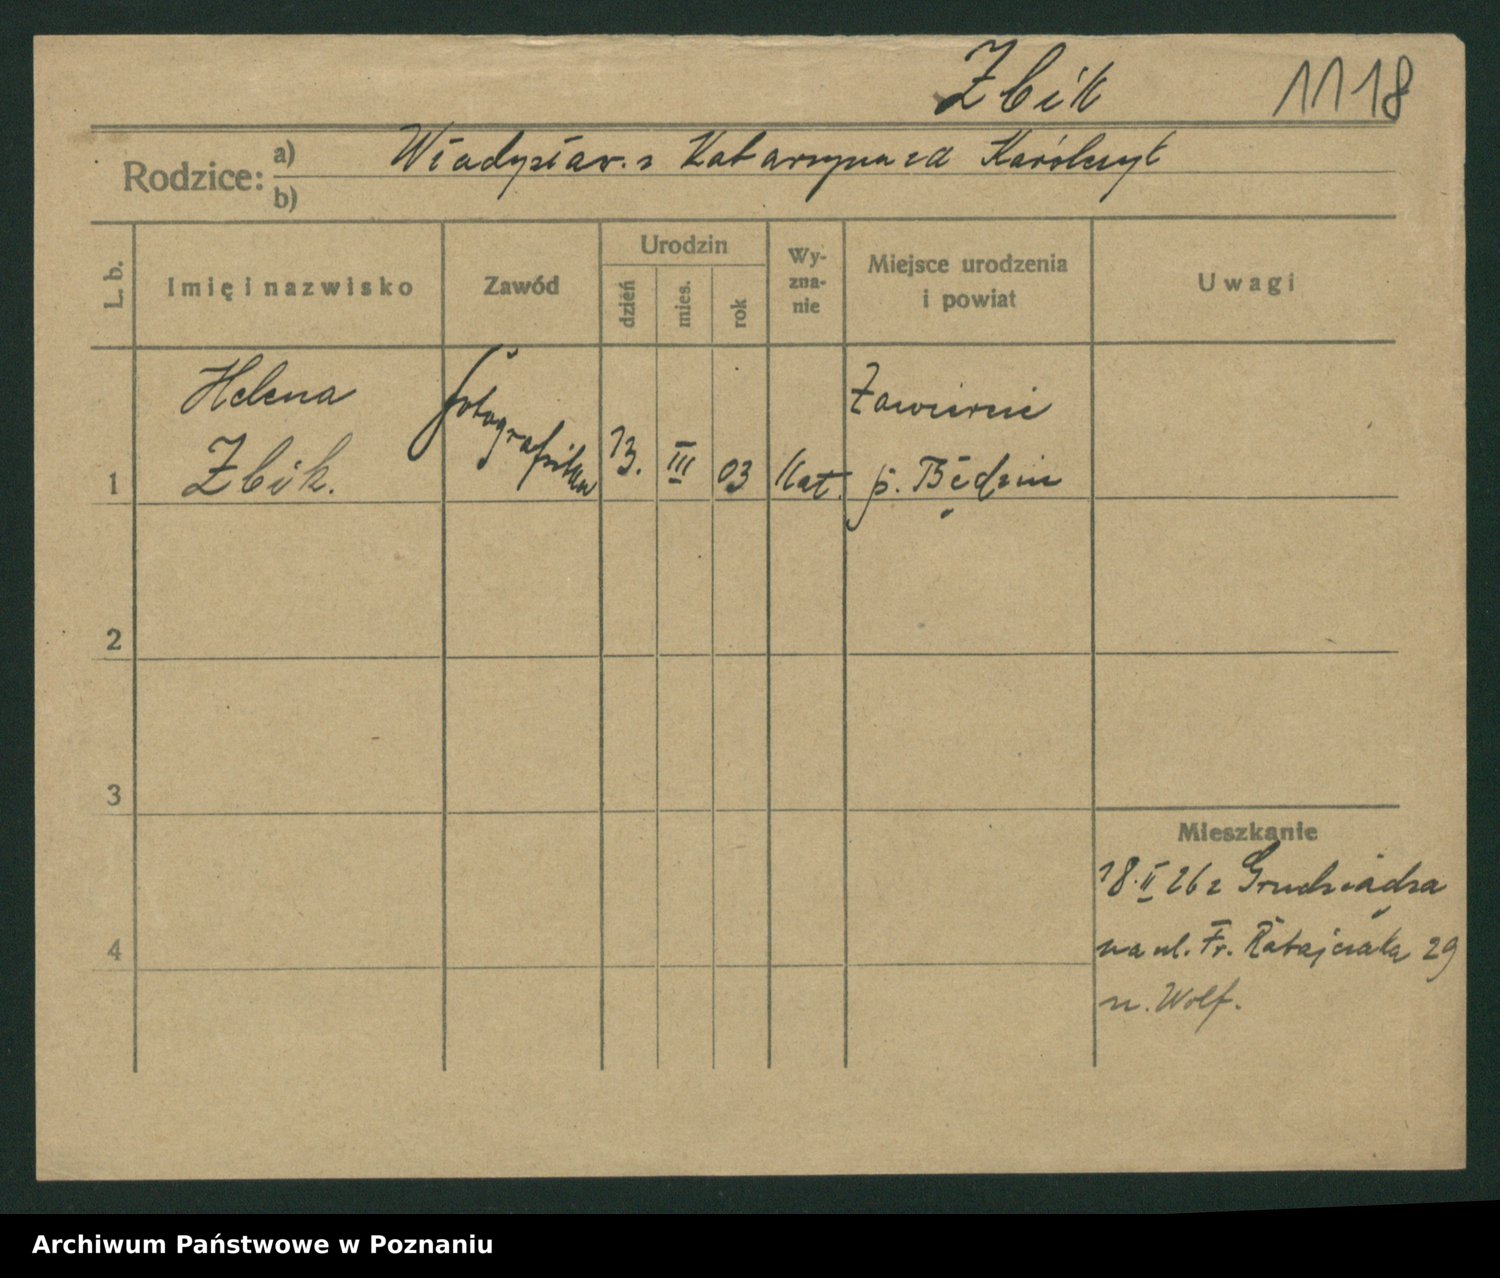 Zbik 1118
Rodzice: a) Władysław. z Katarzyna zd
b)
L. b.
Imię i nazwisko
Zawód
Urodzin
dzień
mies.
rok
Wy-
zna-
nie
Miejsce urodzenia
i powiat
Uwagi
1
Helena
Zbik.
fotografistka
13.
III
03
Kat.
Zawiercie
p. Będzin
2
3
4
Mieszkanie
18.II 26 z Grudziądza
na ul. Fr. Ratajczaka 29
u. Wolf.
Archiwum Państwowe w Poznaniu